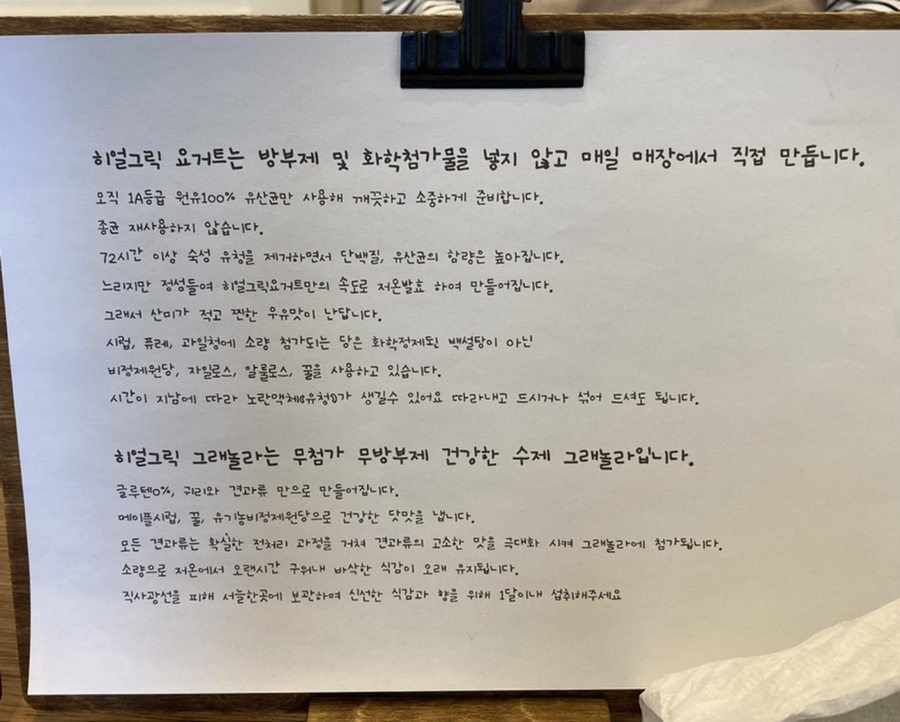 히얼그릭 요거트는 방부제 및 화학첨가물을 넣지 않고 매일 매장에서 직접 만듭니다.
오직 1A등급 원유100% 유산균만 사용해 깨끗하고 소중하게 준비합니다.
종균 재사용하지 않습니다.
72시간 이상 숙성 유청을 제거하면서 단백질, 유산균의 함량은 높아집니다.
느리지만 정성들여 히얼그릭요거트만의 속도로 저온발효 하여 만들어집니다.
그래서 산미가 적고 찐한 우유맛이 난답니다.
시럽, 퓨레, 과일청에 소량 첨가되는 당은 화학정제된 백설탕이 아닌
비정제원당, 자일로스, 알룰로스, 꿀을 사용하고 있습니다.
시간이 지남에 따라 노란액체(유청)가 생길수 있어요 따라내고 드시거나 섞어 드셔도 됩니다.
히얼그릭 그래놀라는 무첨가 무방부제 건강한 수제 그래놀라입니다.
글루텐0%, 귀리와 견과류 만으로 만들어집니다.
메이플시럽, 꿀, 유기농비정제원당으로 건강한 단맛을 냅니다.
모든 견과류는 확실한 전처리 과정을 거쳐 견과류의 고소한 맛을 극대화 시켜 그래놀라에 첨가됩니다.
소량으로 저온에서 오랜시간 구워내 바삭한 식감이 오래 유지됩니다.
직사광선을 피해 서늘한곳에 보관하며 신선한 식감과 향을 위해 1달이내 섭취해주세요